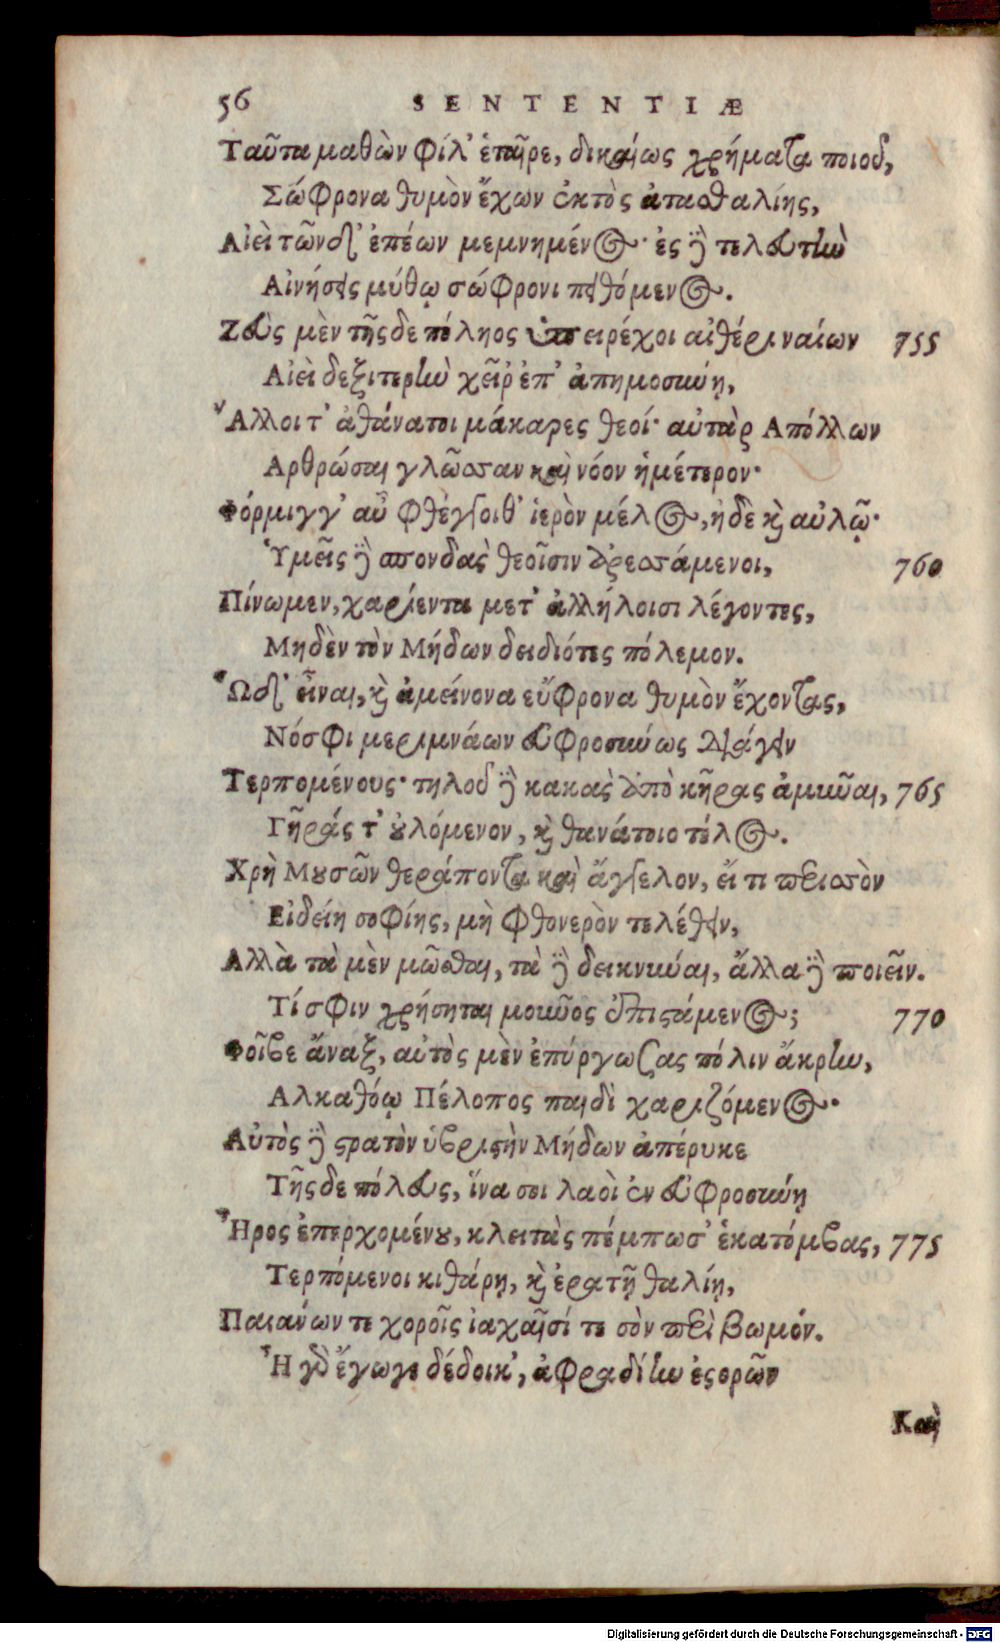 56 SENTENTIÆ
Ταῦτα μαθὼν φίλ᾽ ἑταῖρε, δικαίως χρήματα ποιοῦ,
Σώφρονα θυμὸν ἔχων ἐκτὸς ἀτασθαλίης,
Αἰεὶ τῶνδ᾽ ἐπέων μεμνημένος· ἐς δὲ τελευτὴν
Αἰνήσεις μύθῳ σώφρονι πειθόμενος.
Ζεὺς μὲν τῆσδε πόληος ὑπειρέχοι αἰθέρι ναίων 755
Αἰεὶ δεξιτερὴν χεῖρ᾽ ἐπ᾽ ἀπημοσύνῃ,
Ἄλλοι τ᾽ ἀθάνατοι μάκαρες θεοί· αὐτὰρ Απόλλων
Αρθρώσαι γλῶσσαν καὶ νόον ἡμέτερον·
Φόρμιγγ᾽ αὖ φθέγγοιθ᾽ ἱερὸν μέλος, ἠδὲ καὶ αὐλῷ·
Ὑμεῖς δὲ σπονδὰς θεοῖσιν ἀρεσσάμενοι, 760
Πίνωμεν, χαρίεντα μετ᾽ ἀλλήλοισι λέγοντες,
Μηδὲν τὸν Μήδων δειδιότες πόλεμον.
Ὧδ᾽ εἶναι, καὶ ἀμείνονα εὔφρονα θυμὸν ἔχοντας,
Νόσφι μεριμνάων εὐφροσύνως διάγειν
Τερπομένους· τηλοῦ δὲ κακὰς ἀπὸ κῆρας ἀμῦναι, 765
Γῆράς τ᾽ οὐλόμενον, καὶ θανάτοιο τέλος.
Χρὴ Μουσῶν θεράποντα καὶ ἄγγελον, εἴ τι περισσὸν
Εἰδείη σοφίης, μὴ φθονερὸν τελέθειν,
Αλλὰ τὰ μὲν μῶσθαι, τὰ δὲ δεικνύναι, ἄλλα δὲ ποιεῖν.
Τί σφιν χρήσηται μοῦνος ἐπιστάμενος; 770
Φοῖβε ἄναξ, αὐτὸς μὲν ἐπύργωσας πόλιν ἄκρην,
Αλκαθόῳ Πέλοπος παιδὶ χαριζόμενος·
Αὐτὸς δὲ στρατὸν ὑβριστὴν Μήδων ἀπέρυκε
Τῆσδε πόλευς, ἵνα σοι λαοὶ ἐν εὐφροσύνῃ
Ἦρος ἐπερχομένου, κλειτὰς πέμπωσ᾽ ἑκατόμβας, 775
Τερπόμενοι κιθάρῃ, καὶ ἐρατῇ θαλίῃ,
Παιάνων τε χοροῖς ἰαχαῖσί τε σὸν περὶ βωμόν.
Ἦ γὰρ ἔγωγε δέδοικ᾽, ἀφραδίην ἐσορῶν
Καὶ
Digitalisierung gefördert durch die Deutsche Forschungsgemeinschaft - DFG